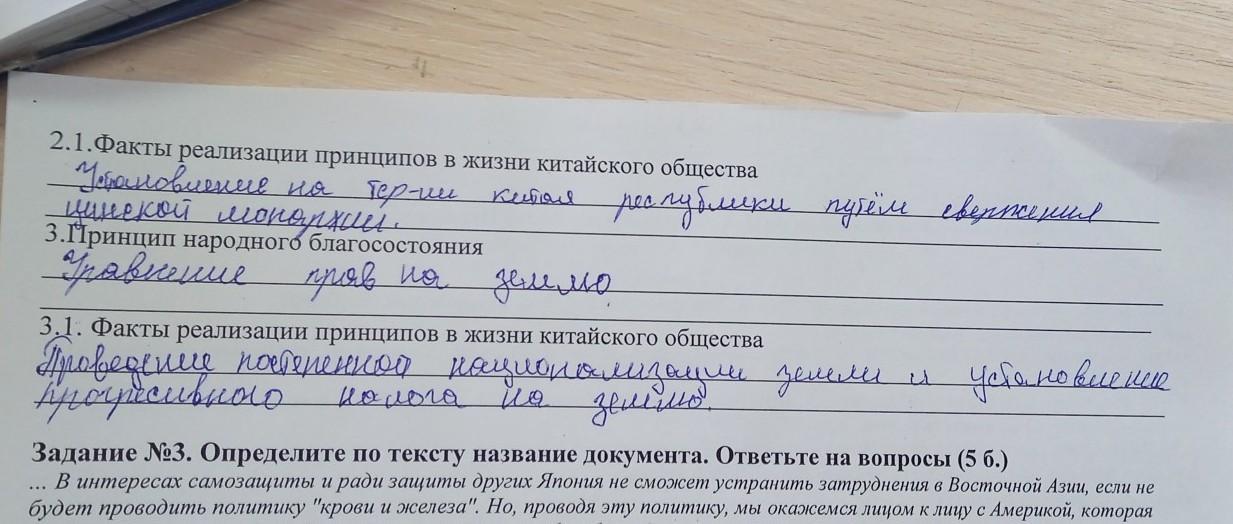 2.1.Факты реализации принципов в жизни китайского общества
Установление на тер-ии китая республики путём свержения
цинской монархии.
3.Принцип народного благосостояния
Уравнение прав на землю
3.1. Факты реализации принципов в жизни китайского общества
Проведение постепенной национализации земли и установление
прогресивного налога на землю.
Задание №3. Определите по тексту название документа. Ответьте на вопросы (5 б.)
... В интересах самозащиты и ради защиты других Япония не сможет устранить затруднения в Восточной Азии, если не
будет проводить политику "крови и железа". Но, проводя эту политику, мы окажемся лицом к лицу с Америкой, которая